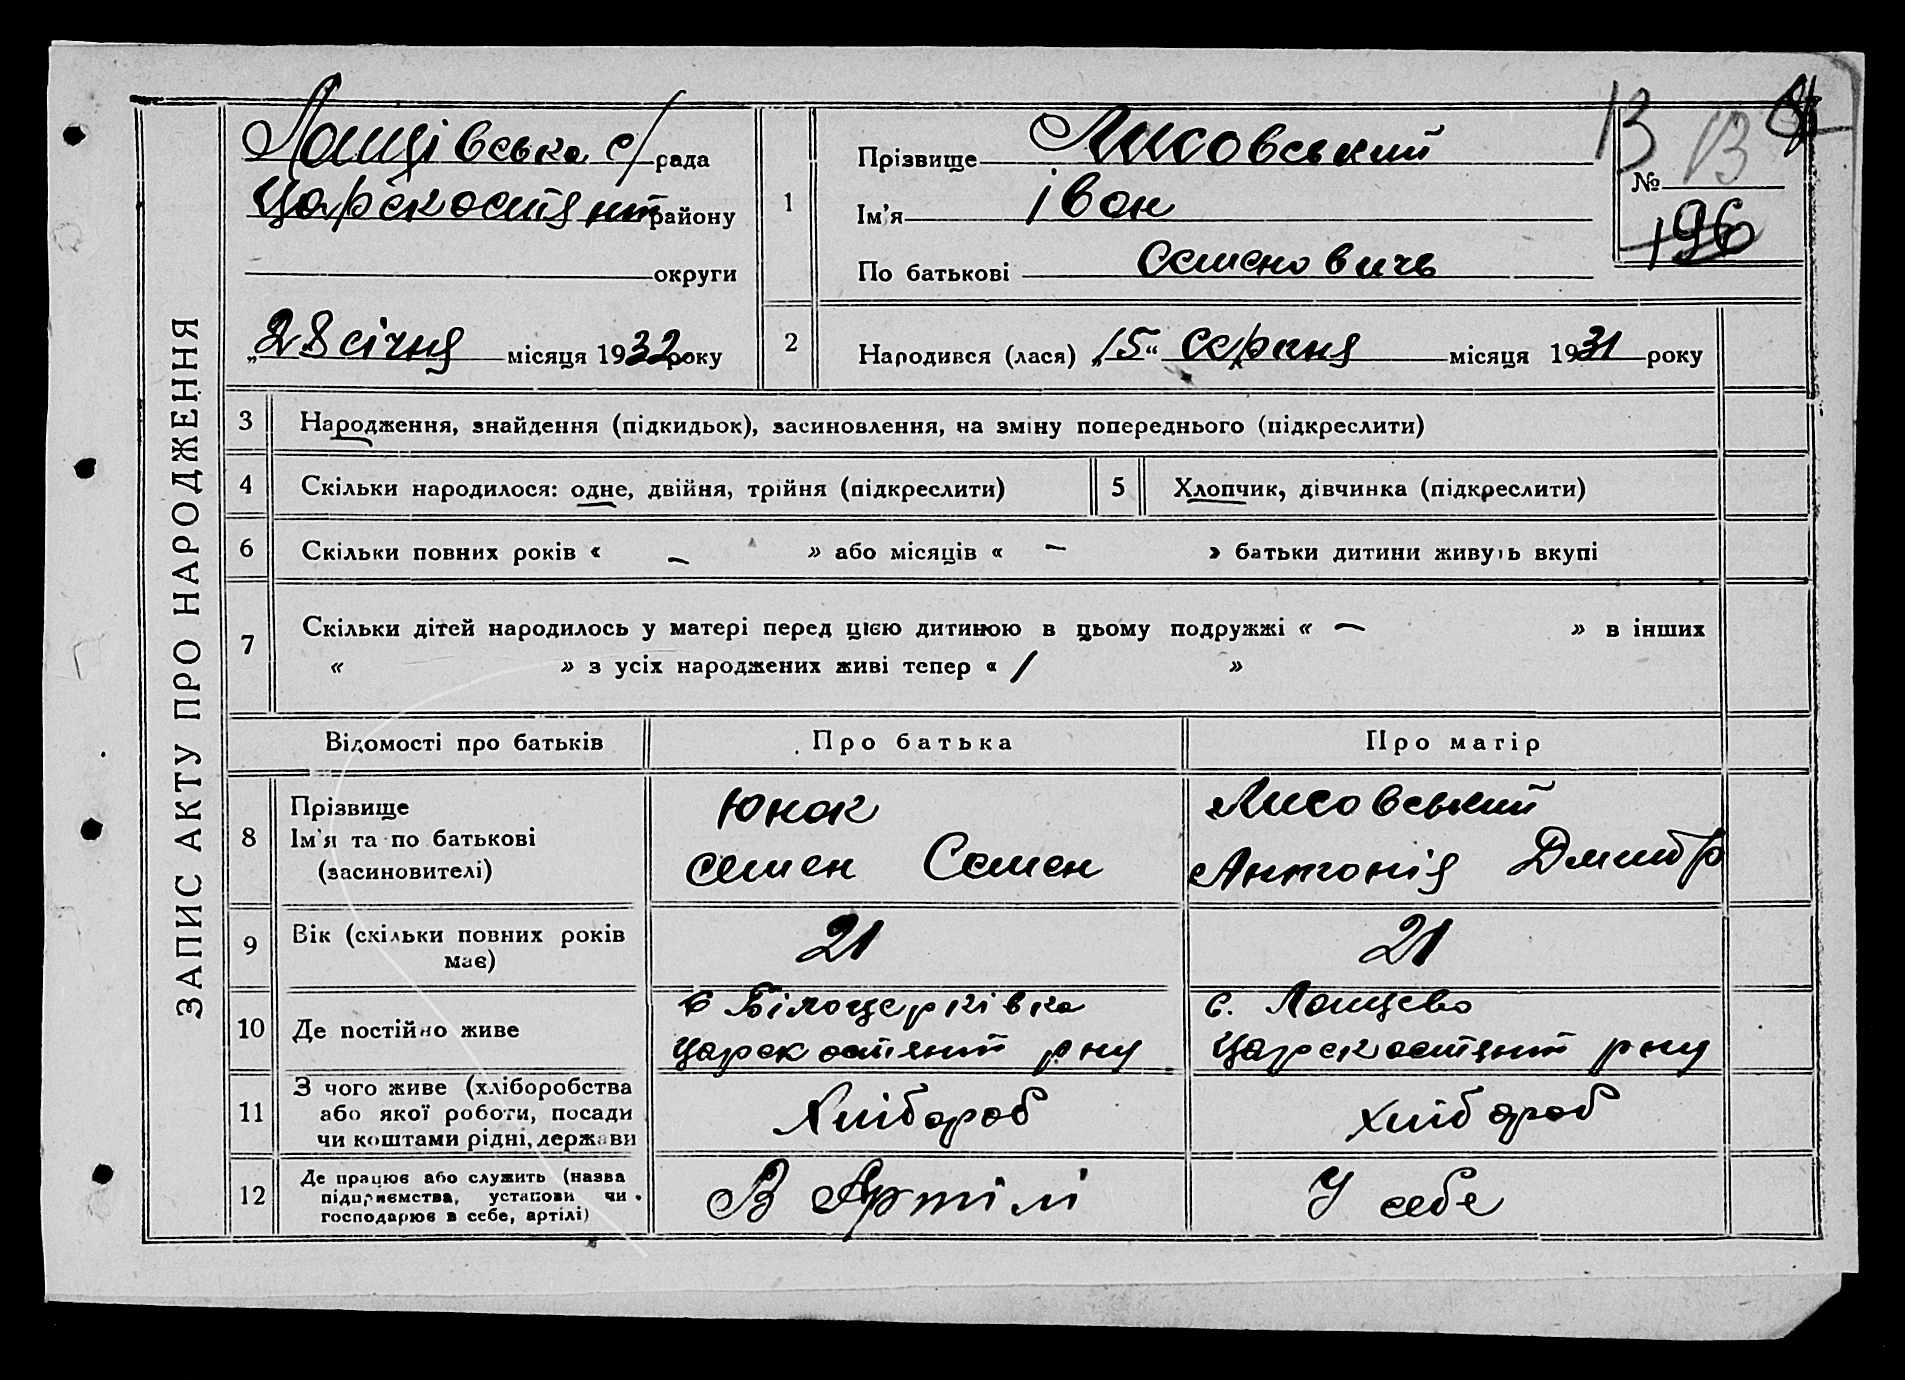 ЗАПИС АКТУ ПРО НАРОДЖЕННЯ
Лащівська с/рада
Царскостянт району
округи
„28 січня місяця 1932 року
1
Прізвище Лисовський
Ім'я Іван
По батькові Семеновичь
13 13
№
196
2 Народився (лася) „15“ Серпня місяця 1931 року
3 Народження, знайдення (підкидьок), засиновлення, на зміну попереднього (підкреслити)
4 Скільки народилося: одне, двійня, трійня (підкреслити) 5 Хлопчик, дівчинка (підкреслити)
6 Скільки повних років « — » або місяців « — » батьки дитини живуть вкупі
7 Скільки дітей народилось у матері перед цією дитиною в цьому подружжі « — » в інших
« » з усіх народжених живі тепер « 1 »
Відомості про батьків Про батька Про матір
8 Прізвище
Ім'я та по батькові
(засиновителі)
Юнак
Семен Семен
Лисовський
Антонія Дмитр
9 Вік (скільки повних років
має)
21
21
10 Де постійно живе
с Білоцерківка
Царскостянт рну
с. Лащево
Царскостянт рну
11 З чого живе (хліборобства
або якої роботи, посади
чи коштами рідні, держави
Хлібароб
Хлібароб
12 Де працює або служить (назва
підприємства, установи чи
господарює в себе, артілі)
В Артілі
У себе